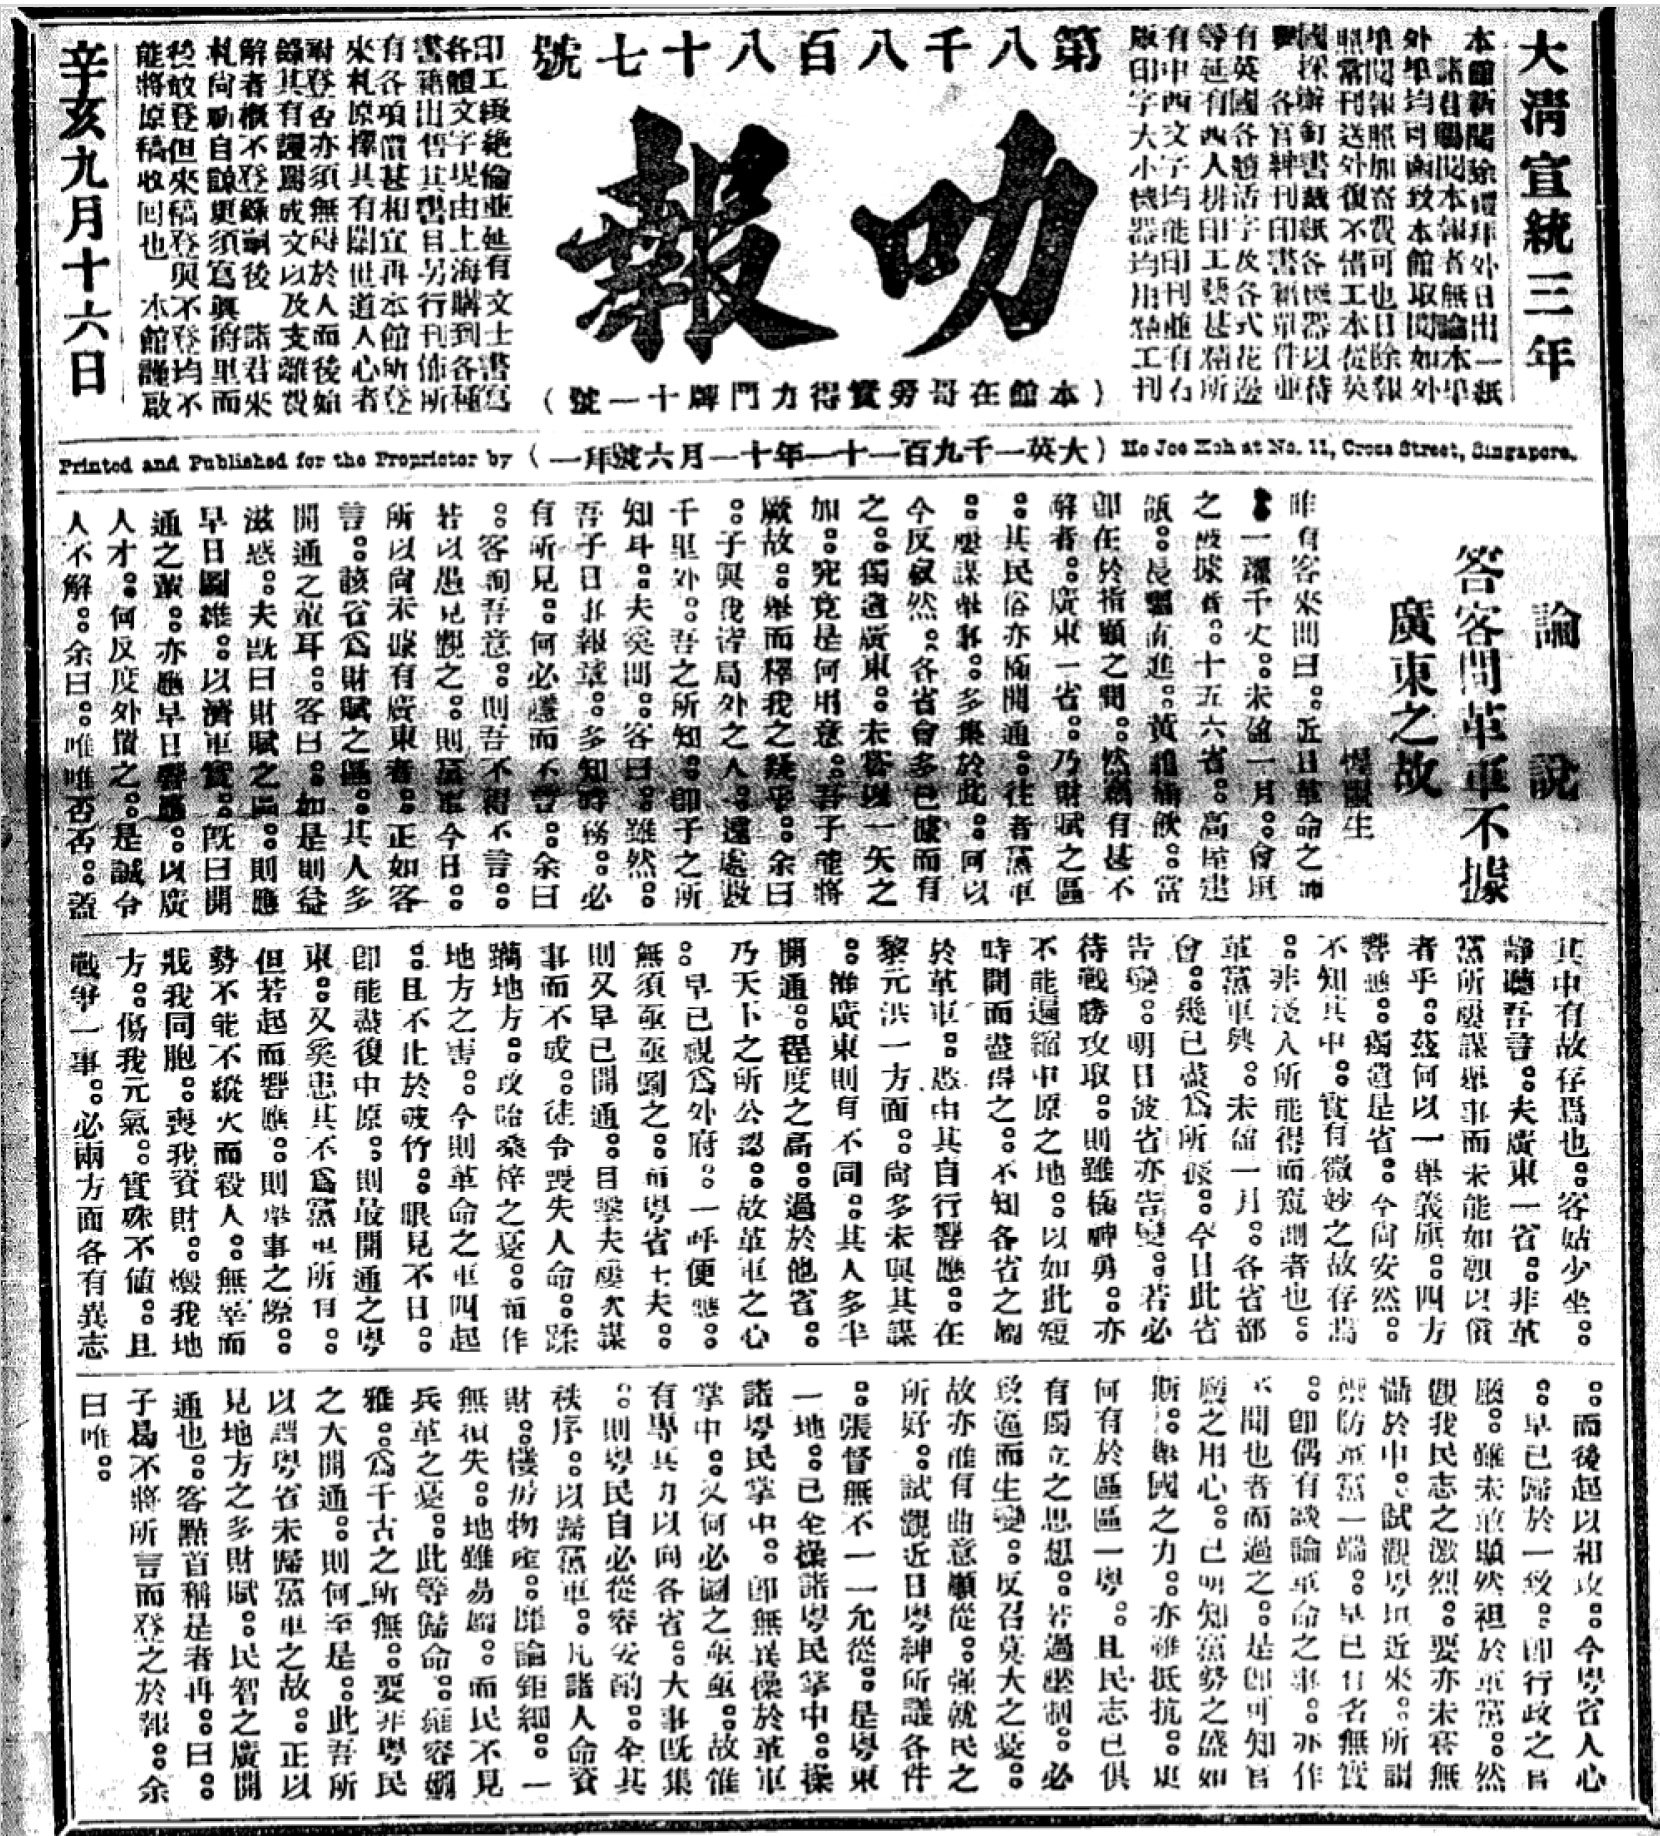 大清宣統三年
本館新聞除禮拜外日出一紙
諸君賜閱本報者無論本埠
外埠均可函致本館取閱如外
埠閱報照加寄費可也日除報
照常刊送外復不惜工本從英
國採辦釘書裁紙各機器以待
各官紳刊印書籍單件並
有英國各體活字及各式花邊
等延有西人排印工藝甚精所
有中西文字均能印刊並有石
版印字大小機器均用精工刊
第八千八百八十七號
叻報
（本館在哥勞實得力門牌十一號）
印工緻絕倫並延有文士書寫
各體文字現由上海購到各種
書籍出售其書目另行刊佈所
有各項價甚相宜再本館所登
來札原擇其有關世道人心者
附登否亦須無碍於人而後始
錄其有謾罵成文以及支離費
解者概不登錄嗣後 諸君來
札尚祈自諒更須寫眞爵里而
後敢登但來稿登與不登均不
能將原稿收回也 本館謹啟
辛亥九月十六日
Printed and Published for the Proprietor by （大英一千九百一十一年十一月六號拜一） Ho Joo Koh at No. 11, Cross Street, Singapore.
論說
答客問革軍不據
廣東之故
惺觀生
昨有客來問曰。近日革命之師
一躍千丈。未盈一月。會垣
之被據者。十五六省。高屋建
瓴。長驅直進。黃龍痛飲。當
即在於指顧之間。然猶有甚不
解者。廣東一省。乃財賦之區
。其民俗亦極開通。往者黨軍
。屢謀舉事。多集於此。何以
今反寂然。各省會多已據而有
之。獨遺廣東。未嘗以一矢之
加。究竟是何用意。吾子能將
厥故。舉而釋我之疑乎。余曰
。子與我皆局外之人。遠處數
千里外。吾之所知。即子之所
知耳。夫奚問。客曰。雖然。
吾子日事報章。多知時務。必
有所見。何必隱而不言。余曰
。客詢吾意。則吾不得不言。
若以愚見觀之。則黨軍今日。
所以尚未據有廣東者。正如客
言。該省爲財賦之區。其人多
開通之輩耳。客曰。如是則益
滋惑。夫旣曰財賦之區。則應
早日圖維。以濟軍實。旣曰開
通之輩。亦應早日響應。以廣
人才。何反度外置之。是誠令
人不解。余曰。唯唯否否。蓋
其中有故存焉也。客姑少坐。
靜聽吾言。夫廣東一省。非革
黨所屢謀舉事而未能如願以償
者乎。茲何以一舉義旗。四方
響應。獨遺是省。今尚安然。
不知其中。實有微妙之故存焉
。非淺人所能得而窺測者也。
革黨軍興。未盈一月。各省都
會。幾已盡爲所據。今日此省
告變。明日彼省亦告變。若必
待戰勝攻取。則雖極神勇。亦
不能遍縮中原之地。以如此短
時間而盡得之。不知各省之屬
於革軍。悉由其自行響應。在
黎元洪一方面。尙多未與其謀
。維廣東則有不同。其人多半
開通。程度之高。過於他省。
乃天下之所公認。故革軍之心
。早已視爲外府。一呼便應。
無須亟亟圖之。而粵省士夫。
則又早已開通。目擊夫屢次謀
事而不成。徒令喪失人命。蹂
躪地方。或貽桑梓之憂。而作
地方之害。今則革命之軍叫起
。且不止於破竹。眼見不日。
即能盡復中原。則最開通之粵
東。又奚患其不爲黨軍所有。
但若起而響應。則舉事之際。
勢不能不縱火而殺人。無辜而
戕我同胞。喪我資財。燬我地
方。傷我元氣。實殊不値。且
戰爭一事。必兩方面各有異志
。而後起以相攻。今粵省人心
。早已歸於一致。即行政之官
廳。雖未敢顯然袒於革黨。然
觀我民志之激烈。要亦未嘗無
懾於中。試觀粵垣近來。所謂
禦防革黨一端。早已有名無實
。即偶有談論革命之事。亦作
不聞也者而過之。是即可知官
廳之用心。已明知黨勢之盛如
斯。舉國之力。亦難抵抗。更
何有於區區一粵。且民志已俱
有獨立之思想。若過壓制。必
致逼而生變。反召莫大之憂。
故亦惟有曲意順從。強就民之
所好。試觀近日粵紳所議各件
。張督無不一一允從。是粵東
一地。已全操諸粵民掌中。操
諸粵民掌中。即無異操於革軍
掌中。又何必圖之亟亟。故惟
有專其力以向各省。大事旣集
。則粵民自必從容安酌。全其
秩序。以歸黨軍。凡諸人命資
財。樓房物產。靡論鉅細。一
無損失。地雖易屬。而民不見
兵革之憂。此等歸命。雍容嫻
雅。爲千古之所無。要非粵民
之大開通。則何至是。此吾所
以謂粵省未歸黨軍之故。正以
見地方之多財賦。民智之廣開
通也。客點首稱是者再。曰。
子曷不將所言而登之於報。余
曰唯。